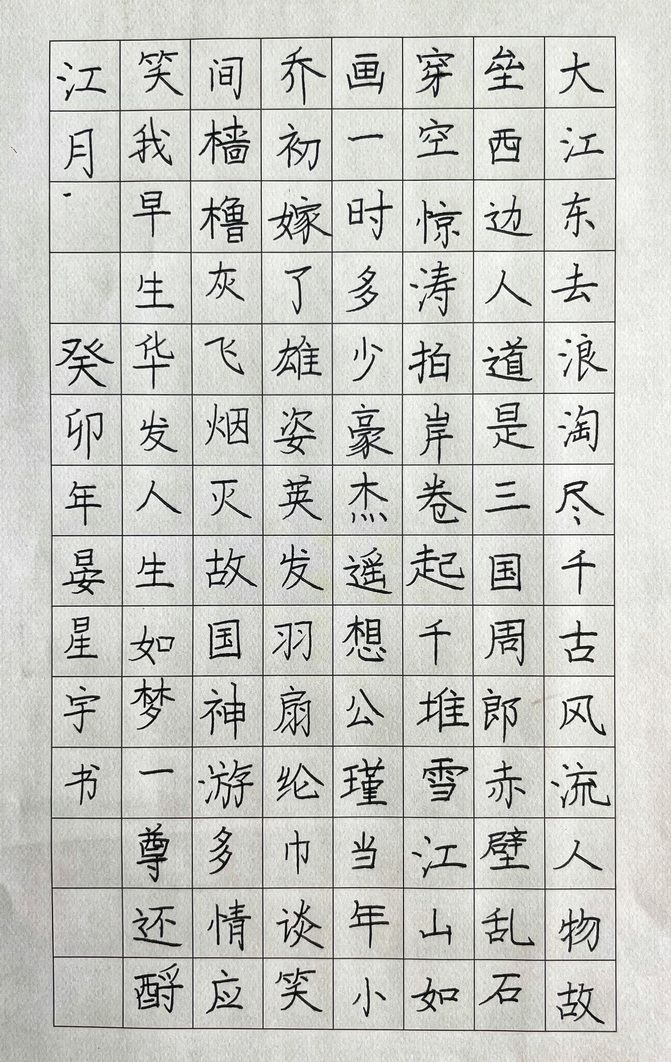 大江东去浪淘尽千古风流人物故
垒西边人道是三国周郎赤壁乱石
穿空惊涛拍岸卷起千堆雪江山如
画一时多少豪杰遥想公瑾当年小
乔初嫁了雄姿英发羽扇纶巾谈笑
间樯橹灰飞烟灭故国神游多情应
笑我早生华发人生如梦一尊还酹
江月
癸卯年晏星宇书